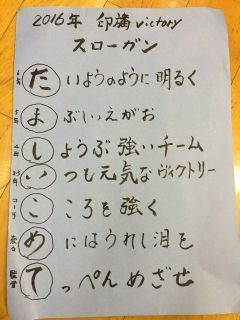 2016年 印旛 victory
スローガン
6年 た いようのように明るく
5年 よ ぶいえがお
4年 し ょうぶ強いチーム
い つも元気なヴィクトリー
コーチ こ ころを強く
め にはうれし泪を
監督 て っぺんめざせ